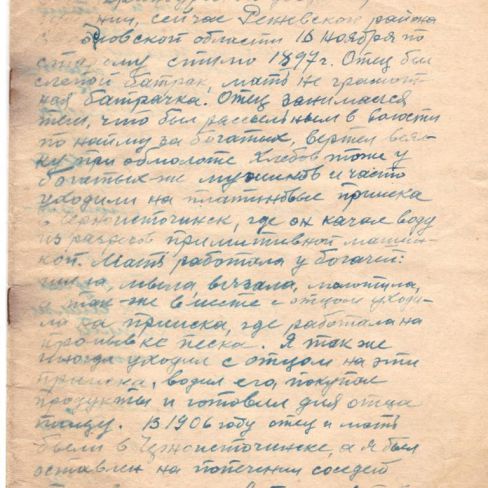 нии, сейчас Режевской района
ской области 16 ноября по
старому стилю 1897 г. Отец был
слепой батрак, мать не грамот
ная батрачка. Отец занимался
тем, что был рассыльным в волости
по найму за богатых, вертел веял-
ку при обмолоте хлебов тоже у
богатых же мужиков и часто
уходили на платиновые прииска
в Черноисточинск, где он качал воду
из разрезов примитивной машин-
кой. Мать работала у богачей:
мыла, вязала, молотила,
а так-же вместе с отцом уходи-
ли на прииска, где работала на
промывке песка. Я так же
иногда уходил с отцом на эти
прииска, водил его, покупал
продукты и готовил для отца
пищу. В 1906 году отец и мать
были в Черноисточинске, а я был
оставлен на попечении соседей